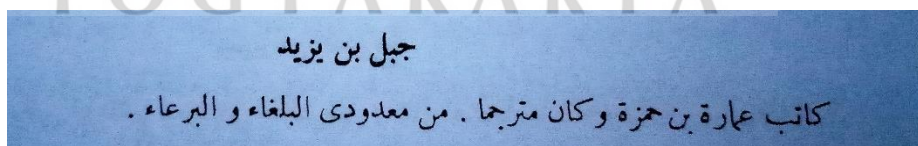 YOGYAKARTA
جبل بن يزيد
كاتب عمارة بن حمزة وكان مترجما . من معدودى البلغاء و البرعاء .